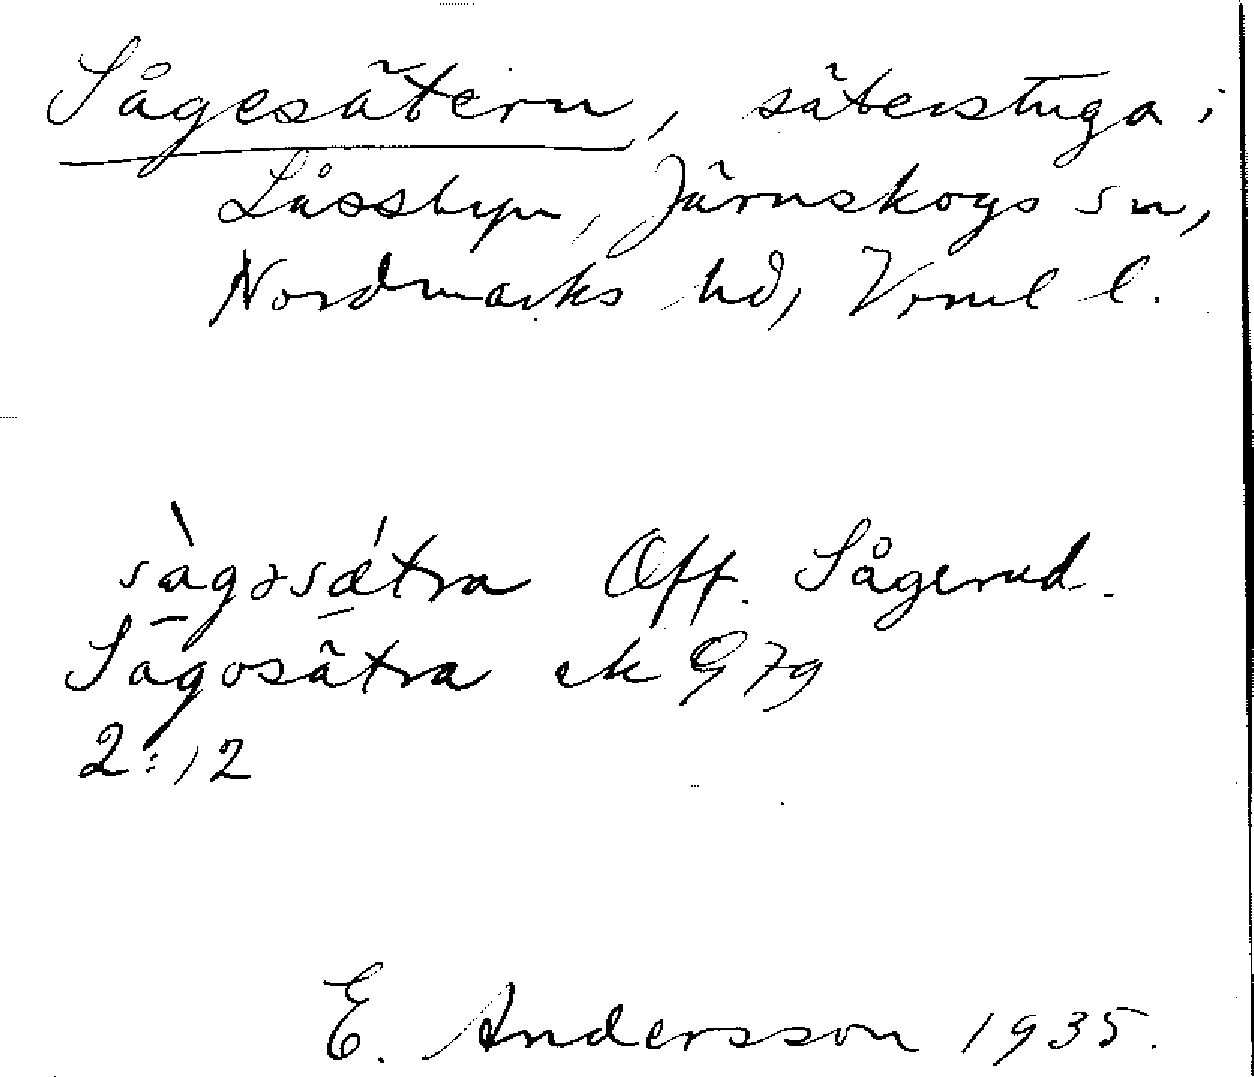 Sågesätern, säterstuga i
Låssbyn, Järnskogs sn,
Nordmarks hd, Vrml l.
sågosætra Off. Sågerud.
Sågosätra ek G 79
2:12
E. Andersson 1935.